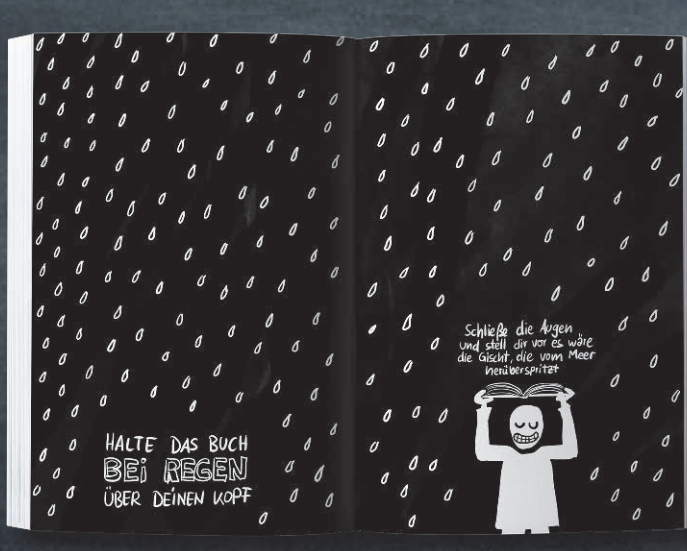 HALTE DAS BUCH
BEi REGEN
ÜBER DEiNEN KOPF
Schließe die Augen
und stell dir vor es wäre
die Gischt, die vom Meer
herüberspritzt